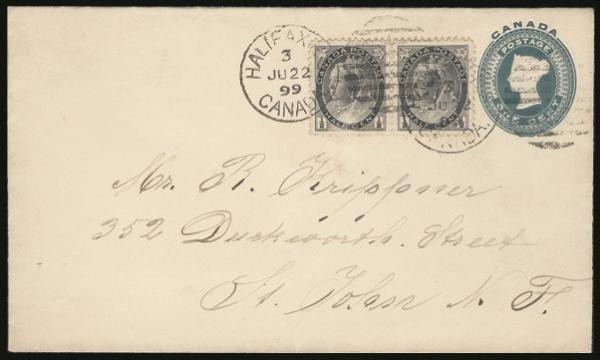 CANADA
POSTAGE
ONE CENT
HALIFAX
3
JU 22
99
CANADA
CANADA POSTAGE
HALF CENT
CANADA POSTAGE
HALF CENT
Mr. R. Krippner
352 Duckworth. Street
St. John N. F.